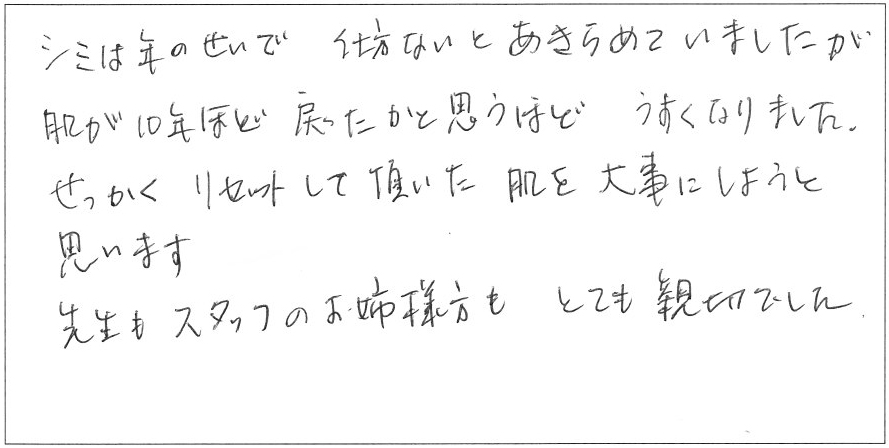 シミは年のせいで 仕方ないとあきらめていましたが
肌が10年ほど戻ったかと思うほど うすくなりました。
せっかくリセットして頂いた肌を大事にしようと
思います
先生もスタッフのお姉様方も とても親切でした